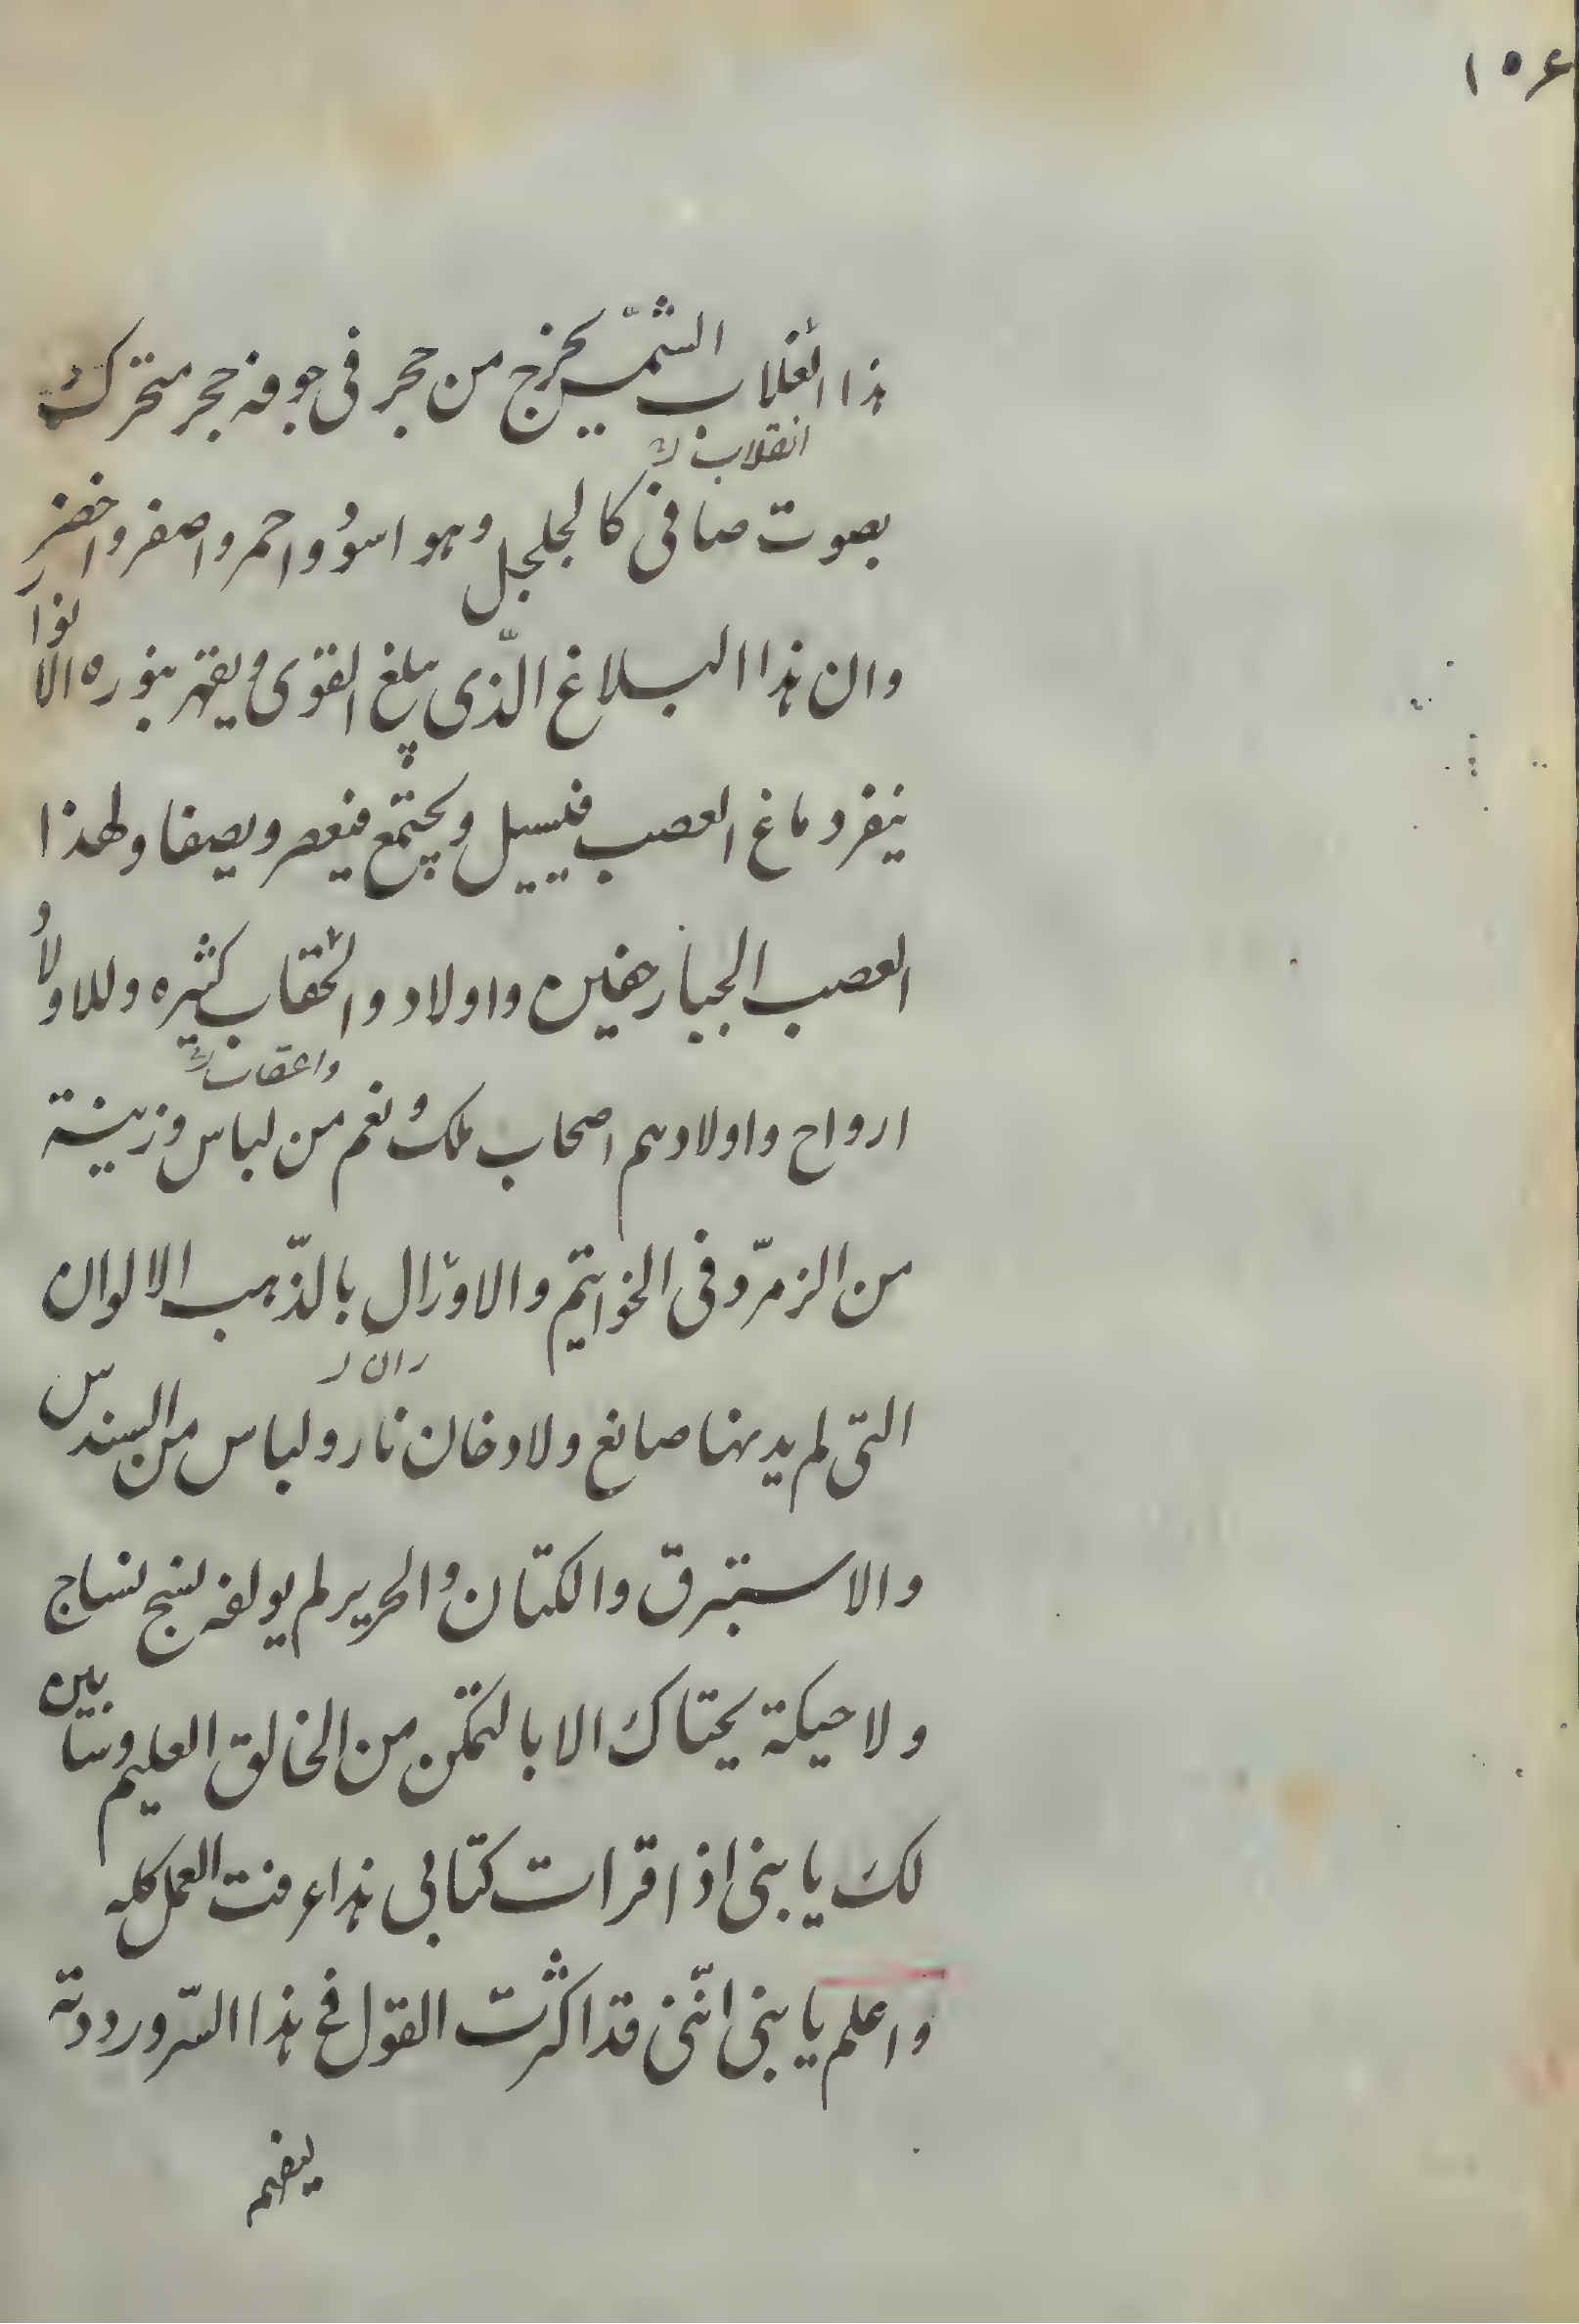 ١٥٤
هذا انغلاب الشمس يخرج من حجر فى جوفه حجر متحرك
انقلاب
بصوت صافى كالجلجل وهو اسود واحمر واصفر واخضر
وان هذا البلاغ الذى يبلغ القوى ويقهر بنوره الانوار
ينفر دماغ العصب فيسيل ويجتمع فيعصر ويصفا ولهذا
العصب الجبار حفين واولاد والحقاب كثيره وللاولاد
واعقاب
ارواح واولادهم اصحاب ملك ونعم من لباس وزينة
من الزمرّد فى الخواتيم والاوزال بالذّهب الالوان
التى لم يدبها صانع ولا دخان نار ولباس من السندس
والاستبرق والكتان والحرير لم يولفه نسج نساج
ولا حيكة يحتاك الا بالتمكن من الخالق العليم وسابين
لك يا بنى اذا قرات كتابى هذا عرفت العمل كله
واعلم يا بنى انّنى قد اكثرت القول فى هذا السّر ورددته
ليفهم